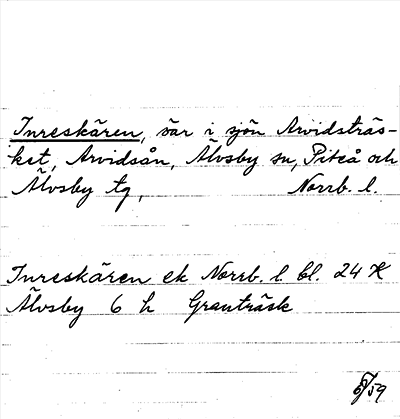 Inreskären, öar i sjön Arvidsträs-
ket, Arvidsån, Älvsby sn, Piteå och
Älvsby tg, Norrb. l.
Inreskären ek Norrb. l. bl. 24 K
Älvsby 6 h Granträsk
/59